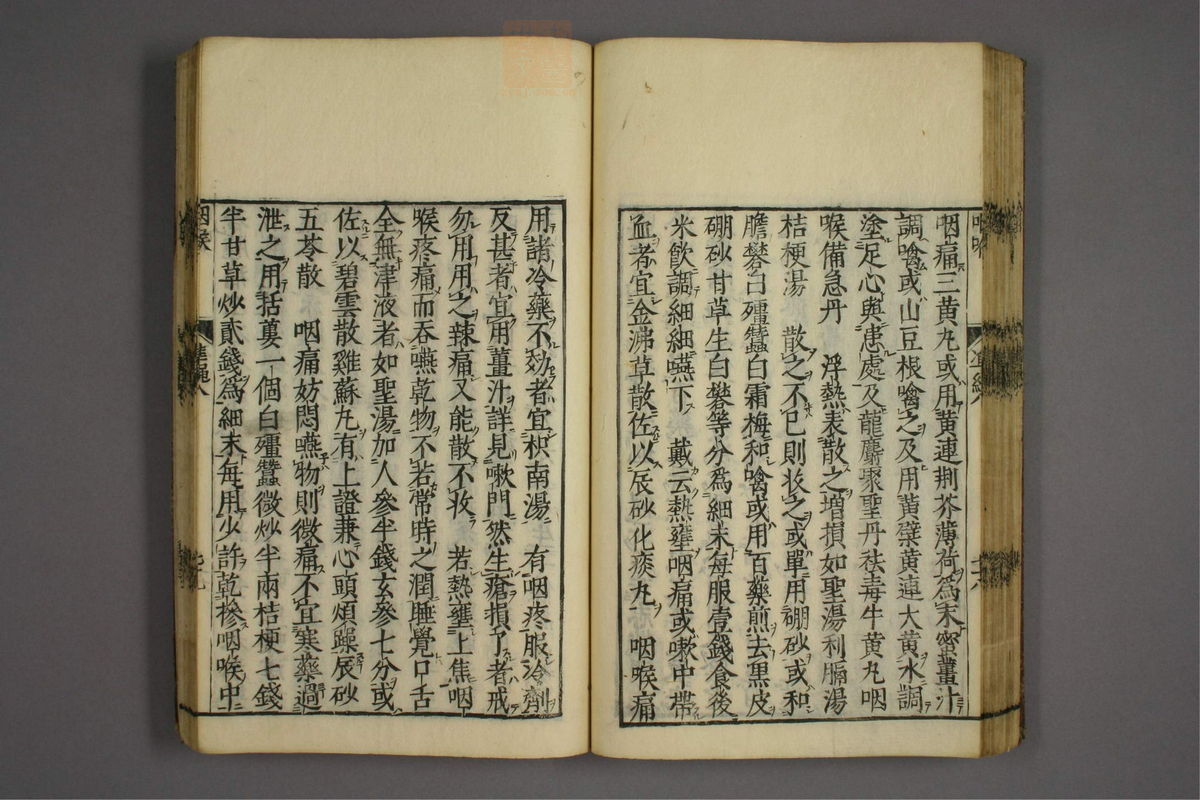 咽痛三黄丸或用黄連荆芥薄荷爲末蜜薑汁
調噙或山豆根噙之及用黄蘗黄連大黄水調
塗足心與患處及龍麝聚聖丹祛毒牛黄丸咽
喉備急丹 浮熱表散之増損如聖湯利膈湯
桔梗湯 散之不已則收之或單用硼砂或和
膽礬白殭蠶白霜梅和噙或用百藥煎去黒皮
硼砂甘草生白礬等分爲細末每服壹錢食後
米飲調細細嚥下 戴云熱壅咽痛或嗽中帶
血者宜金沸草散佐以辰砂化痰丸 咽喉痛
用諸冷藥不効者宜枳南湯 有咽疼服冷劑
反甚者宜用薑汁詳見嗽門然生瘡損了者戒
勿用用之辣痛又能散不收 若熱壅上焦咽
喉疼痛而吞嚥乾物不若常時之潤睡覺口舌
全無津液者如聖湯加人參半錢玄參七分或
佐以碧雲散雞蘇丸有上證兼心頭煩躁辰砂
五苓散 咽痛妨悶嚥物則微痛不宜寒藥過
泄之用括蔞一個白殭蠶微炒半兩桔梗七錢
半甘草炒貳錢爲細末每用少許乾摻咽喉中
咽喉
準繩八